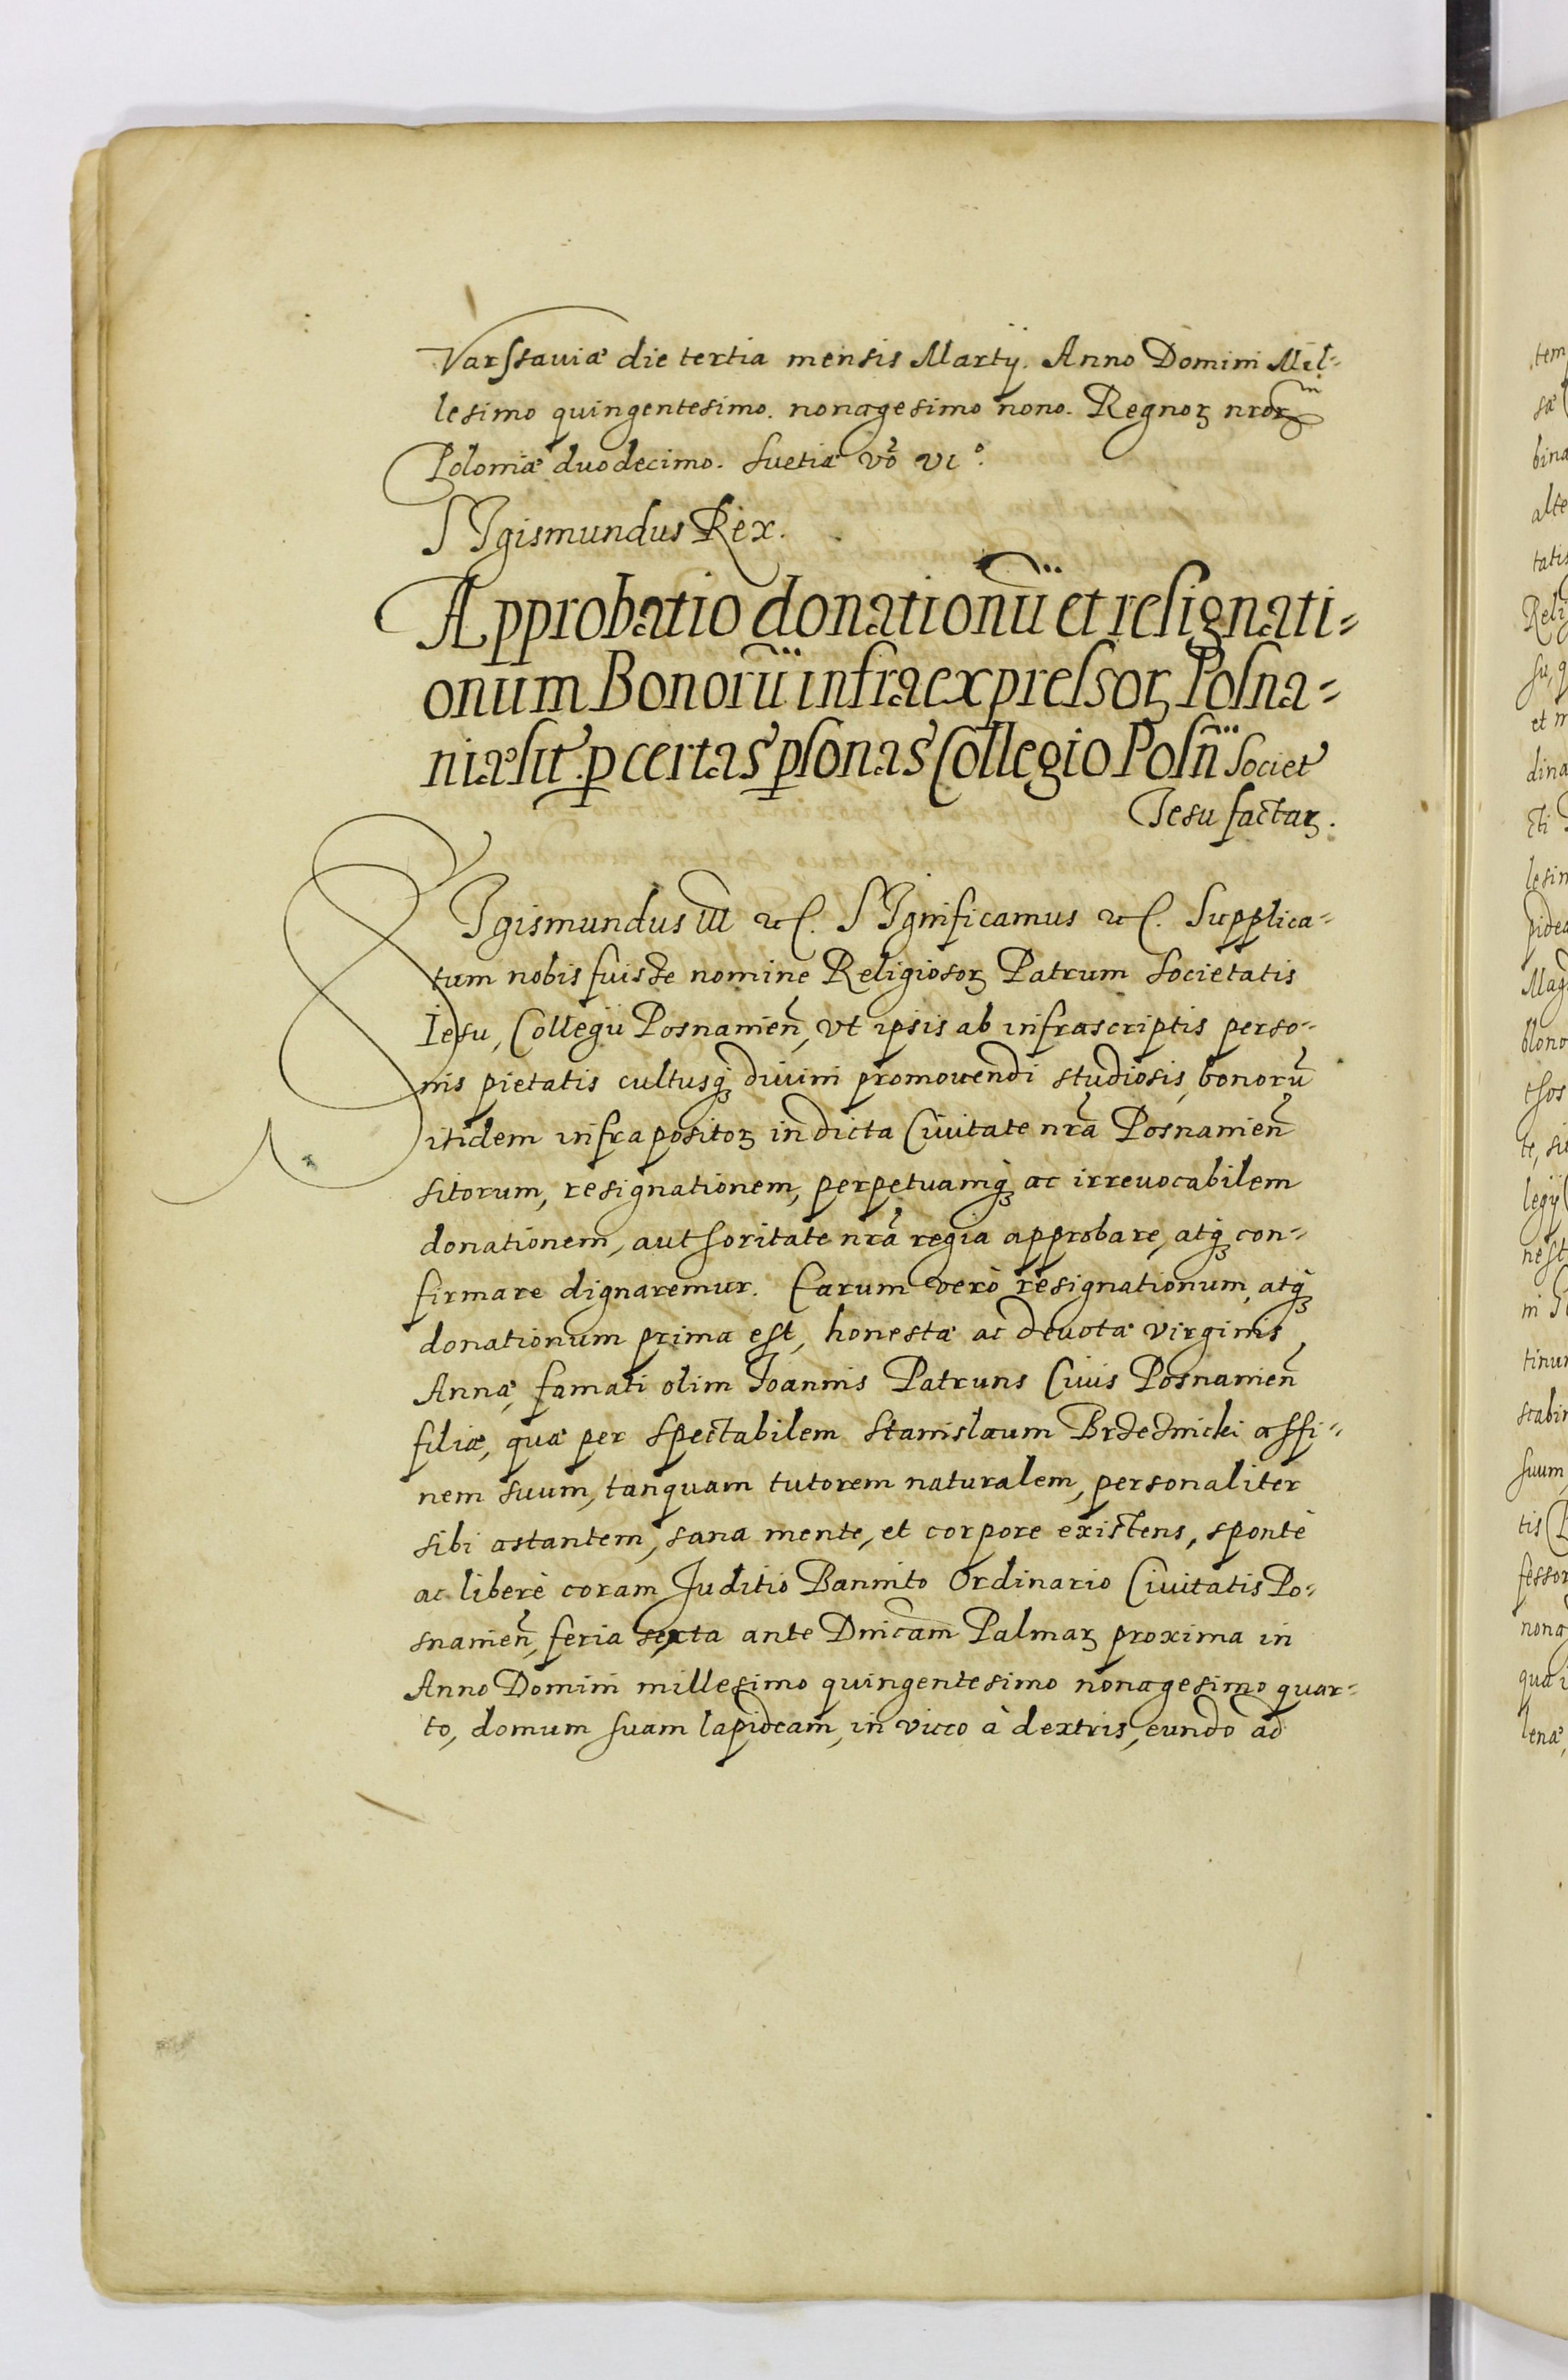 Varssauiæ die tertia mensis Martij. Anno Domini Mil-
lesimo quingentesimo. nonagesimo nono. Regnoꝝ nr̄oꝝ
Poloniæ duodecimo. Suetiæ vō vi°.
SIgismundus Rex.
Approbatio donationū et resignati-
onum Bonorū infra expressoꝝ Posna-
niæ sit. ꝑ certas ꝑsonas Collegio Posn̄ Societ
Iesu factaꝝ.
SIgismundus III etc. SIgnificamus etc. Supplica-
tum nobis fuisse nomine Religiosoꝝ Patrum Societatis
Iesu, Collegii Posnanien̄, vt ipsis ab infrascriptis perso-
nis pietatis cultusqꝫ diuini promouendi studiosis, bonorū
itidem infra positoꝝ in dicta Ciuitate nr̄a Posnanien̄
sitorum, resignationem, perpetuamqꝫ ac irreuocabilem
donationem, authoritate nr̄a regia approbare, atqꝫ con-
firmare dignaremur. Earum verò resignationum, atqꝫ
donationum prima est, honestæ ac deuotæ virginis
Annæ, famati olim Ioannis Patruns Ciuis Posnanien̄
filiæ, quæ per spectabilem Stanislaum affi-
nem suum, tanquam tutorem naturalem, personaliter
sibi astantem, sana mente, et corpore existens, spontè
ac liberè coram Juditio Bannito Ordinario Ciuitatis Po-
snanien̄, feria sexta ante Dnicam̄ Palmaꝝ proxima in
Anno Domini millesimo quingentesimo nonagesimo quar-
to, domum suam lapideam, in vicco à dextris, eundo ad